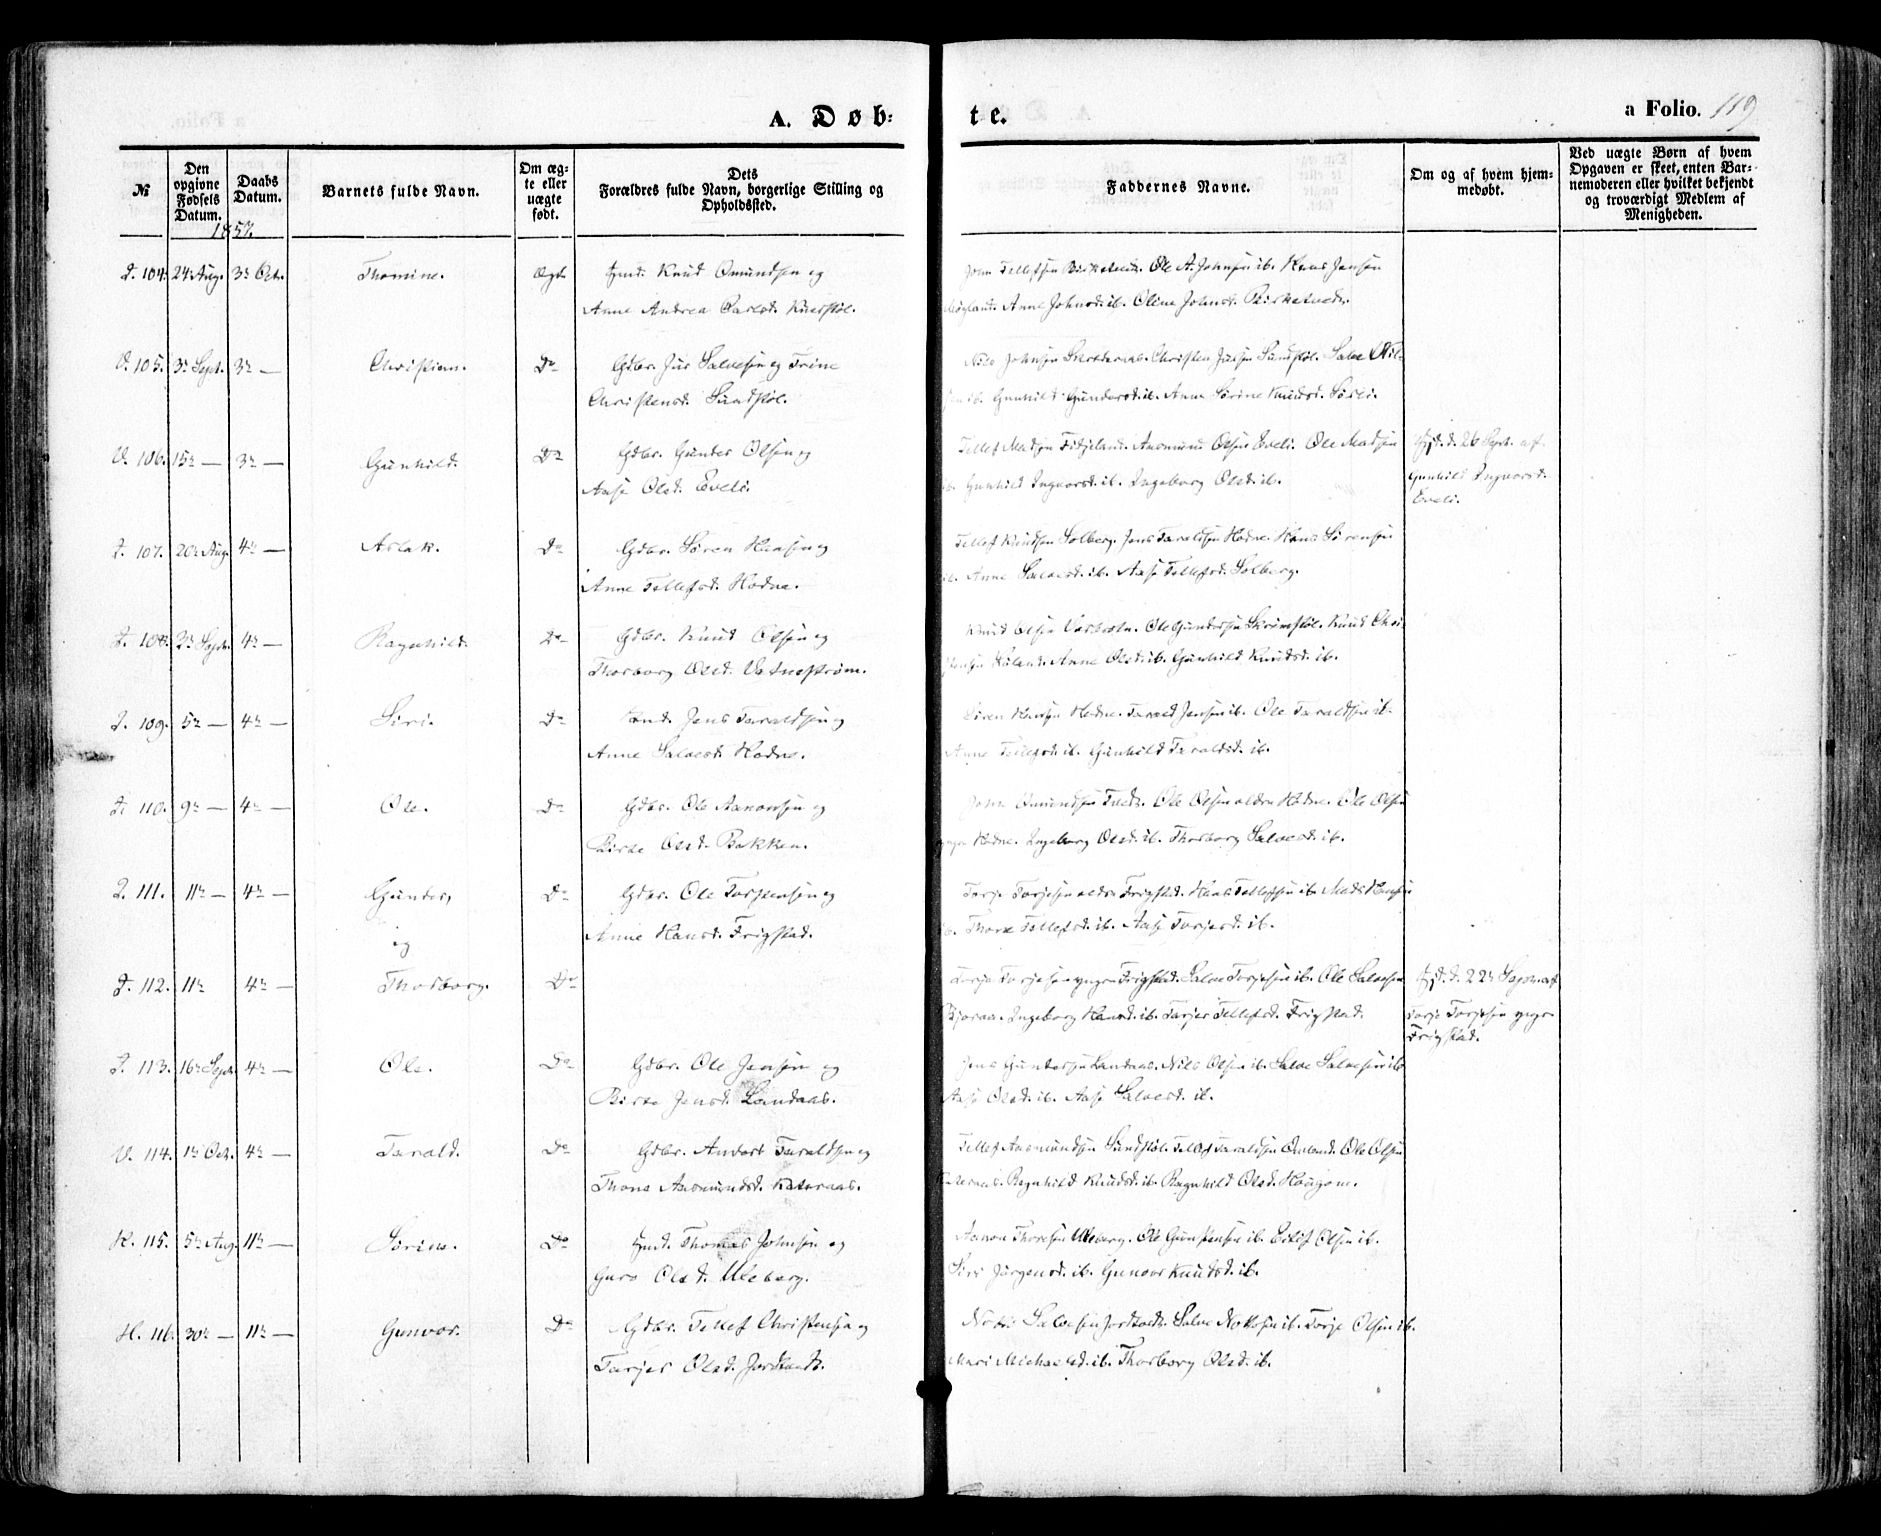 A. Døb-
te.
a Folio. 119
№
Den opgivne Fødsels Datum.
Daabs Datum.
Barnets fulde Navn.
Om ægte eller uægte født.
Dets Forældres fulde Navn, borgerlige Stilling og Opholdssted.
Faddernes Navne.
Om og af hvem hjemmedøbt.
Ved uægte Børn af hvem Opgaven er skeet, enten Barnemoderen eller hvilket bekjendt og troværdigt Medlem af Menigheden.
1857.
104. 24 Aug. 3die Oct. Thomine. Ægt. Knud Omundsen og
Anne Andrea Carlsd.
John Tellefsen Birketvedt. Ole A. Johnsen ib. Hans Jensen
Anne Johnsd. ib. Oline Johnsd. Birketvedt.
V. 105. 3die Sept. 3die — Christian. Do Gdbr. Salvesen og Trine
Christensd. Sundstøl.
Nils Johnsen Christen Sundstøl. Salve
ib. Gunhild Gundersd. ib. Anne Sørine Knudsd.
V. 106. 15de — 3die — Gunhild. Do Gdbr. Gunder Olsen og
Aase Olsd. Eveli.
Tellef Madsen Fidjeland. Aasmund Olsen Eveli. Ole Madsen
ib. Gunhild Ingvorsd. ib. Ingeborg Olsd. ib.
Hjd. d. 26 Sept. af
Gunhild Ingvorsd.
Eveli.
107. 20de Aug. 4de — Aslak. Do Gdbr. Søren Hansen og
Anne Tellefsd. Hodne.
Tellef Knudsen Solberg. Jens Taraldsen Hodne. Hans Sørensen
ib. Anne Salvesd. ib. Aase Tellefsd. Solberg.
108. 2den Sept. 4de — Ragnhild. Do Gdbr. Knud Olsen og
Thorborg Olsd. Vatnestrøm.
Knud Olsen Ole Gundersen Knud
Anne Olsd. ib. Gunhild Knudsd. ib.
109. 5te — 4de — Siri. Do Jens Taraldsen og
Anne Salvesd. Hodne.
Søren Hansen Hodne. Tarald Jensen ib. Ole Taraldsen ib.
Anne Tellefsd. ib. Gunhild Taraldsd. ib.
110. 9de — 4de — Ole. Do Gdbr. Ole Aanonsen og
Birte Olsd. Bakken.
Omundsen Ole Olsen ældre Hodne. Ole Olsen
yngre Hodne. Ingeborg Olsd. ib. Thorborg Salvesd. ib.
111. 11te — 4de — Gunder, Do Gdbr. Ole Torstensen og
og
Anne Hansd. Frigstad.
Torje Torjesen ældre Frigstad. Hans Tellefsen ib. Mads Hansen
ib. Thore Tellefsd. ib. Aase Torjesd. ib.
112. 11te 4de — Thorborg. Do
Torje Torjesen yngre Frigstad. Salve Torjesen ib. Ole Salvesen
Bjoraa. Ingeborg Hansd. ib. Tarjer Tellefsd. Frigstad.
Hjd. d. 22de Sept. af
Torje Torjesen yngre
Frigstad.
113. 16de Sept. 4de — Ole. Do Gdbr. Ole Jensen og
Birte Jensd. Landaas.
Jens Gundersen Landaas. Nils Olsen ib. Salve Salvesen ib.
Aase Olsd. ib. Aase Salvesd. ib.
V. 114. 1ste Oct. 4de — Tarald. Do Gdbr. Anders Taraldsen og
Thone Aasmundsd. Kateraas.
Tellef Aasmundsen Sundstøl. Tellef Taraldsen Ole Olsen
Kateraas. Ragnhild Knudsd. ib. Ragnhild Olsd. Haugom.
H. 115. 5te Aug. 11te — Sørine. Do Thomas Johnsen og
Guro Olsd. Uleberg.
Aanon Thorsen Uleberg. Ole Gunstensen ib. Eilef Olsen ib.
Siri Jørgensd. ib. Gunvor Knudsd. ib.
H. 116. 30te — 11te — Gunvor. Do Gdbr. Tellef Christensen og
Tarjer Olsd.
Salvesen Salve ib. Torje Olsen ib.
Mari Michaelsd. ib. Thorborg Olsd. ib.